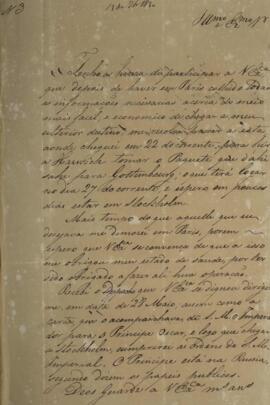 N 3
Illmo e Exmo Sr
Tenho a honra de participar a V Exa
que depois de haver em Paris colhido todas
as informações necessarias acerca do meio
mais facil, e economico de chegar a meu
ulterior destino, me resolvi passar a esta
aonde cheguei em 22 do corrente, para hir
a Harwich tomar o Paquete que dahi
sahe para Gottenbourg, o que terá logar
no dia 27 do corrente, e espero em poucos
dias estar em Stockholm.
Mais tempo do que aquelle que eu
desejava me demorei em Paris, porem
espero que V Exa se convença de que a isso
me obrigou meu estado de saude, por ter
sido obrigado a fazer ali huma operação.
Recebi o Despacho que V Exa se dignou dirigir
me, em data de 28 Maio, assim como a
carta que o acompanhava de S. M. o Impera
dor para o Principe Oscar, e logo que chegar
a Stockholm, cumprirei as Ordens de S. M.
Imperial. O Principe está na Russia,
segundo dizem os papeis publicos.
Deos Guarde a V Exa ms ans